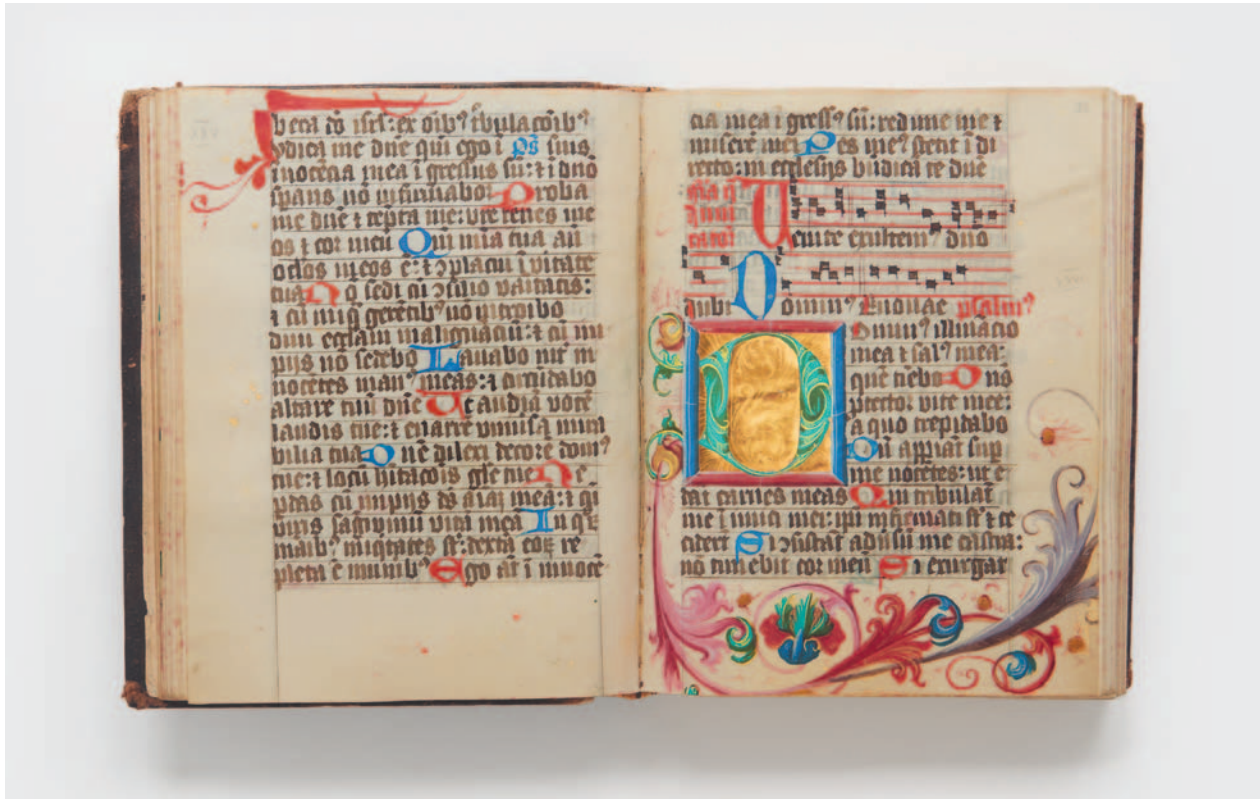 bera ds̄ isrl̄: ex oīb⁹ tbulacōib⁹
Judica me dn̄e qm̄ ego ī p̄s̄ suis
īnocēcia mea ī gressus sū: ⁊ ī dn̄o
sꝑans nō īnfirmabor Proba
me dn̄e ⁊ tēpta me: vre renes me
os ⁊ cor meū Qm̄ mīa tua an̄
oclos meos ē: ⁊ ↄplacui ī v̾itate
tua Nō sedi cū ↄsilio vanitatis:
⁊ cū iniq̄ gerētib⁹ nō introibo
Odiui eccl̄iam malignāciū: ⁊ cū im
pijs nō sedebo Lauabo int̾ in
nocētes man⁹ meas: ⁊ circūdabo
altare tuū dn̄e Ut audiā vocē
laudis tue: ⁊ enarrē vniūsa mira
bilia tua Dn̄e dilexi decorē dom⁹
tue: ⁊ locū hītacōis gl̄e tue Ne
ꝑdas cū impijs ds̄ aīaz meā: ⁊ cū
viris sāgwinū vitā meā In qͦꝝ
manib⁹ iniq̄tates st̄: dextˢa eoꝝ re
pleta ē munib⁹ Ego aūt ī innocē
cia mea ī gress⁹ sū: redime me ⁊
misere̾ mei Pes me⁹ stetit ī di
recto: in ecclesijs bn̄dicā te dn̄e
Uenite exultem⁹ dn̄o
Dominꝰ Euouae psalm⁹
Dominꝰ illuīnacio
mea ⁊ sal⁹ mea:
quē timebo Dn̄s
ꝓtector vite mee:
a quo trepidabo
Dū appiāt suꝑ
me nocētes: ut e
dāt carnes meas Qui tribulāt
me īimici mei: ipī īfirmati st̄ ⁊ ce
ciderūt Si ↄsistāt adūsū me castra:
nō timebit cor meū Si exurgat